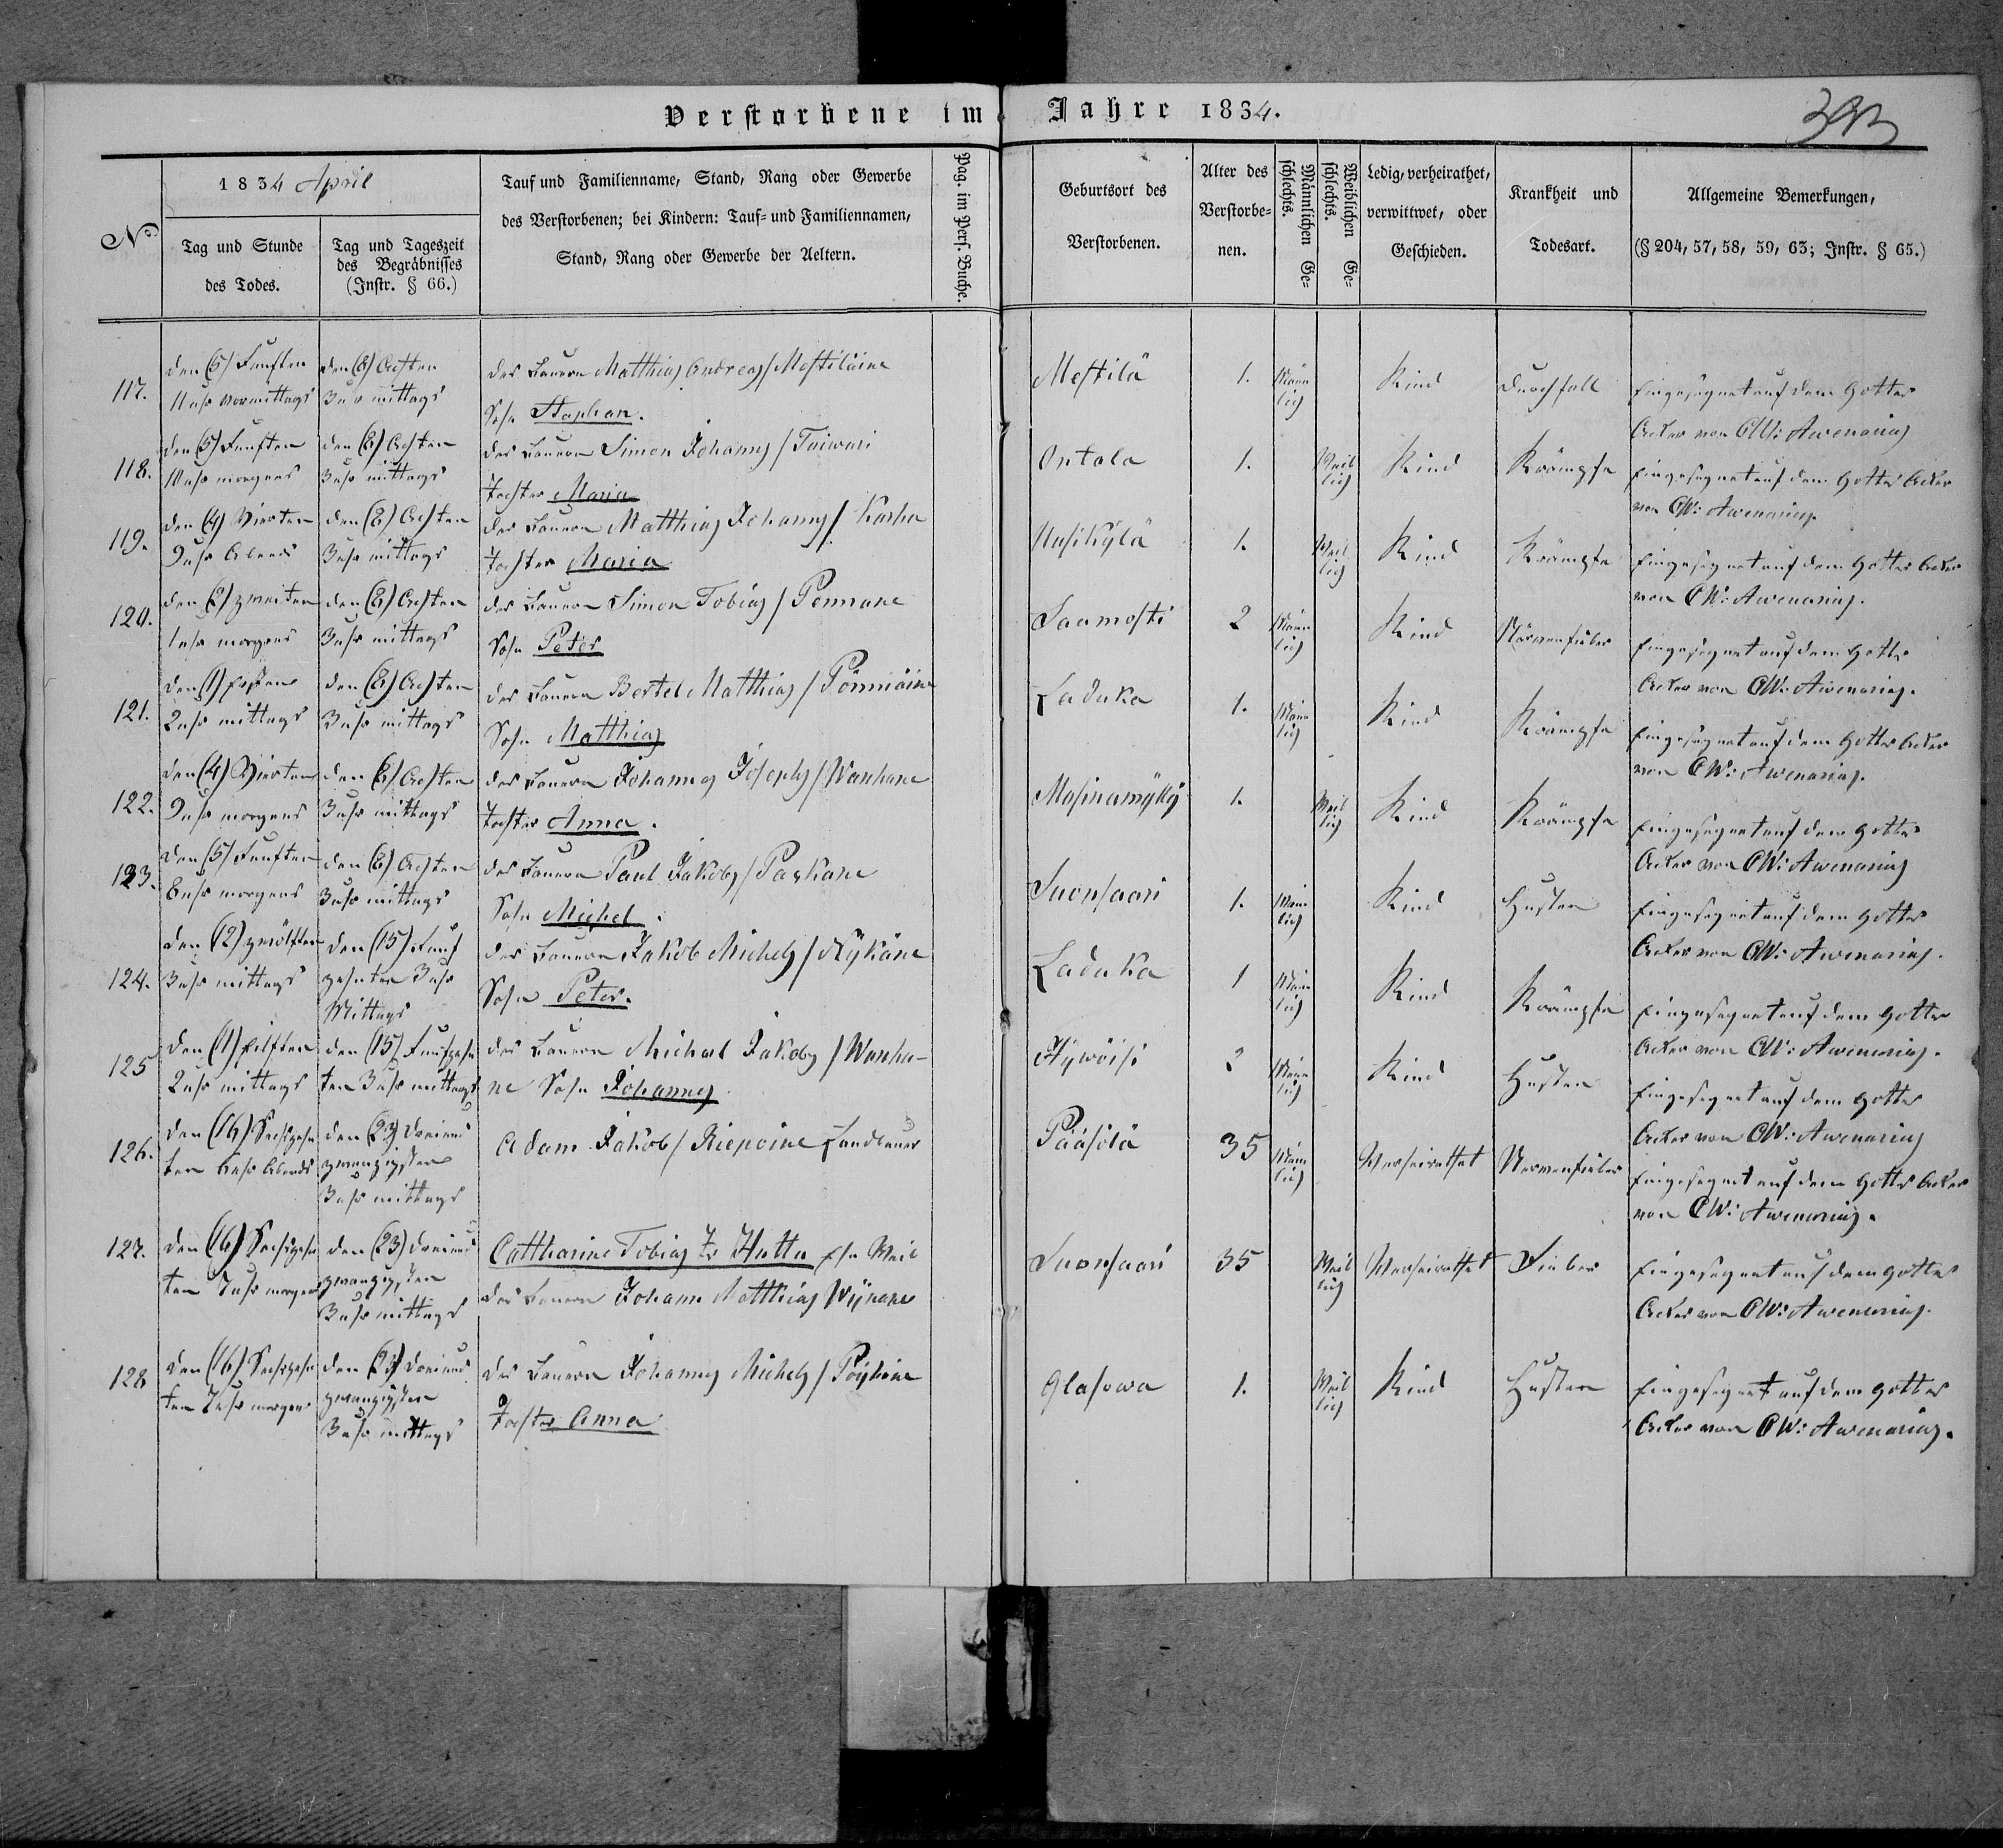 Verstorbene im Jahre 1834.
393
N°
1834 April
Tag und Stunde
des Todes.
Tag und Tageszeit
des Begräbnisses
(Instr. § 66.)
Tauf und Familienname, Stand, Rang oder Gewerbe
des Verstorbenen; bei Kindern: Tauf- und Familiennamen,
Stand, Rang oder Gewerbe der Aeltern.
Pag. im Pers. Buche.
Geburtsort des
Verstorbenen.
Alter des
Verstorbe-
nen.
Männlichen Ge-
schlechts.
Weiblichen Ge-
schlechts.
Ledig, verheirathet,
verwittwet, oder
Geschieden.
Krankheit und
Todesart.
Allgemeine Bemerkungen,
(§ 204, 57, 58, 59, 63; Instr. § 65.)
117.
den (5) Fünften
11 uhr vormittags
den (8) Achten
3 uhr mittags
des Bauern Matthias Andreas / Mestiläine
Sohn Stephan.
Mestilä
1.
Männ
lich
Kind
Durchfall
Eingesegnet auf dem Gottes
Acker von CW: Awenarius
118.
den (5) Fünften
10 uhr morgens
den (8) Achten
3 uhr mittags
des Bauern Simon Johanns / Taiwari
Tochter Maria
Ontala
1.
Weib
lich
Kind
Krämpfe
Eingesegnet auf dem Gottes Acker
von CW: Awenarius.
119.
den (4) Vierten
9 uhr Abends
den (8) Achten
3 uhr mittags
des Bauern Matthias Johanns / Karha
Tochter Maria
Uusikylä
1.
Weib
lich
Kind
Krämpfe
Eingesegnet auf dem Gottes Acker
von CW: Awenarius.
120.
den (2) zweiten
1 uhr morgens
den (8) Achten
3 uhr mittags
des Bauern Simon Tobias / Pennane
Sohn Peter
Saamosti
2
Männ
lich
Kind
Eingesegnet auf dem Gottes
Acker von CW: Awenarius.
121.
den (1) Ersten
2 uhr mittags
den (8) Achten
3 uhr mittags
des Bauern Bertel Matthias / Pönniäine
Sohn Matthias
Laduka
1.
Männ
lich
Kind
Krämpfe
Eingesegnet auf dem Gottes Acker
von CW: Awenarius.
122.
den (4) Vierten
9 uhr morgens
den (8) Achten
3 uhr mittags
des Bauern Johannes Josephs / Wanhane
Tochter Anna.
Masinamÿkÿ
1.
Weib
lich
Kind
Krämpfe
Eingesegnet auf dem Gottes
Acker von CW: Awenarius
123.
den (5) Fünften
6 uhr morgens
den (8) Achten
3 uhr mittags
des Bauern Paul Jakobs / Paskane
Sohn Michel.
Suonsaari
1.
Männ
lich
Kind
Husten
Eingesegnet auf dem Gottes
Acker von CW: Awenarius.
124.
den (12) zwölften
3 uhr mittags
den (15) Fünf
zehnten 3 uhr
Mittags
des Bauern Jakob Michels / Nÿkäne
Sohn Peter.
Laduka
1
Männ
lich
Kind
Krämpfe
Eingesegnet auf dem Gottes
Acker von CW: Awenarius.
125
den (11) Eilften
2 uhr mittags
den (15) Fünfzehn
ten 3 uhr mittags
des Bauern Michael Jakobs / Wanha-
ne Sohn Johannes
Hÿwöisi
2
Männ
lich
Kind
Husten
Eingesegnet auf dem Gottes
Acker von CW: Awenarius
126.
den (16) Sechzehn
ten 6 uhr Abends
den (23) dreiund
zwanzigsten
3 uhr mittags
Adam Jakob / Riepoine Landbauer
Pääsölä
35
Männ
lich
Verheirathet
Nervenfieber
Eingesegnet auf dem Gottes Acker
von CW: Awenarius.
127.
den (16) Sechzehn
ten 7 uhr morgens
den (23) dreiund
zwanzigsten
3 uhr mittags
Cattharine Tobias Tr Huttu Ehe Weib
des Bauern Johann Matthias Wÿnane
Suonsaari
35
Weib
lich
Verheirathet
Fieber
Eingesegnet auf dem Gottes
Acker von CW: Awenarius.
128
den (16) Sechzehn
ten 7 uhr morgens
den (23) dreiund
zwanzigsten
3 uhr mittags
des Bauern Johannes Michels / Pöÿhöne
Tochter Anna
Glasowa
1.
Weib
lich
Kind
Husten
Eingesegnet auf dem Gottes
Acker von CW: Awenarius.